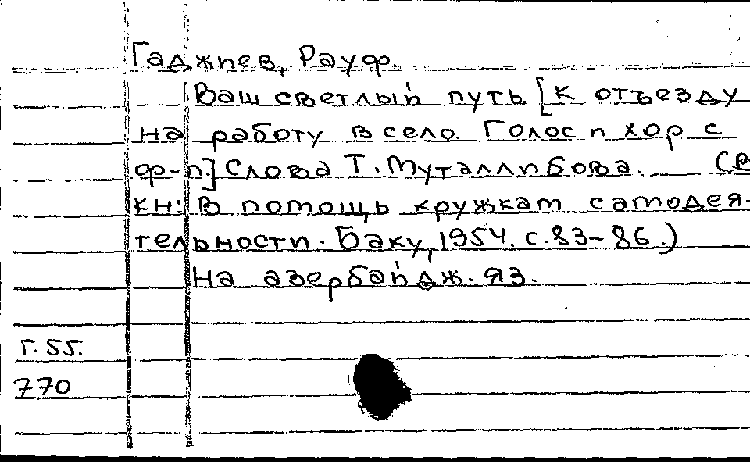 Гаджиев, Рауф.
Ваш светлый путь. [К отъезду
на работу в село. Голос и хор с
ф-п] Слова Т. Муталлибова. (В
кн: В помощь кружкам самодея-
тельности. Баку, 1954. с. 83-86.)
На азербайдж. яз.
Г. 55.
770